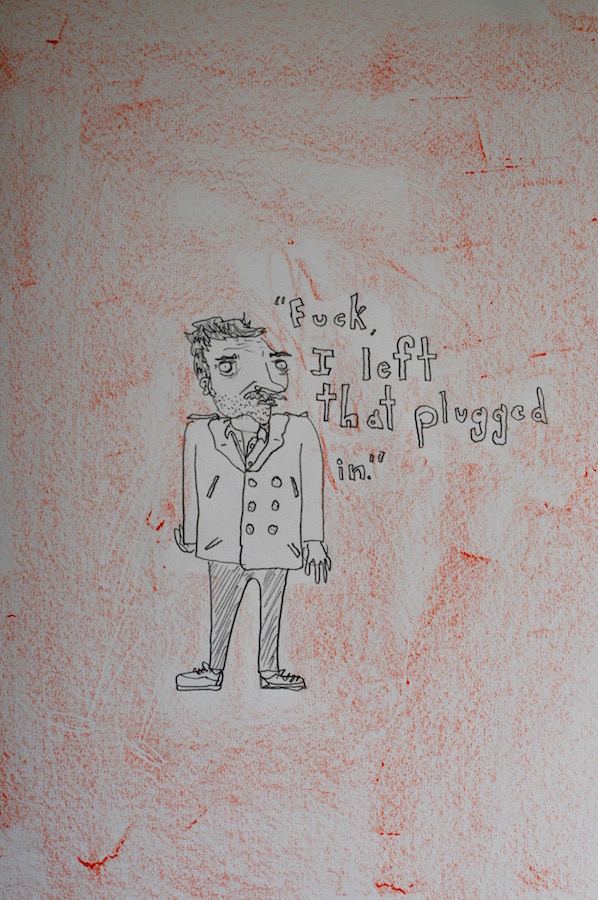 "Fuck,
I left
that plugged
in."